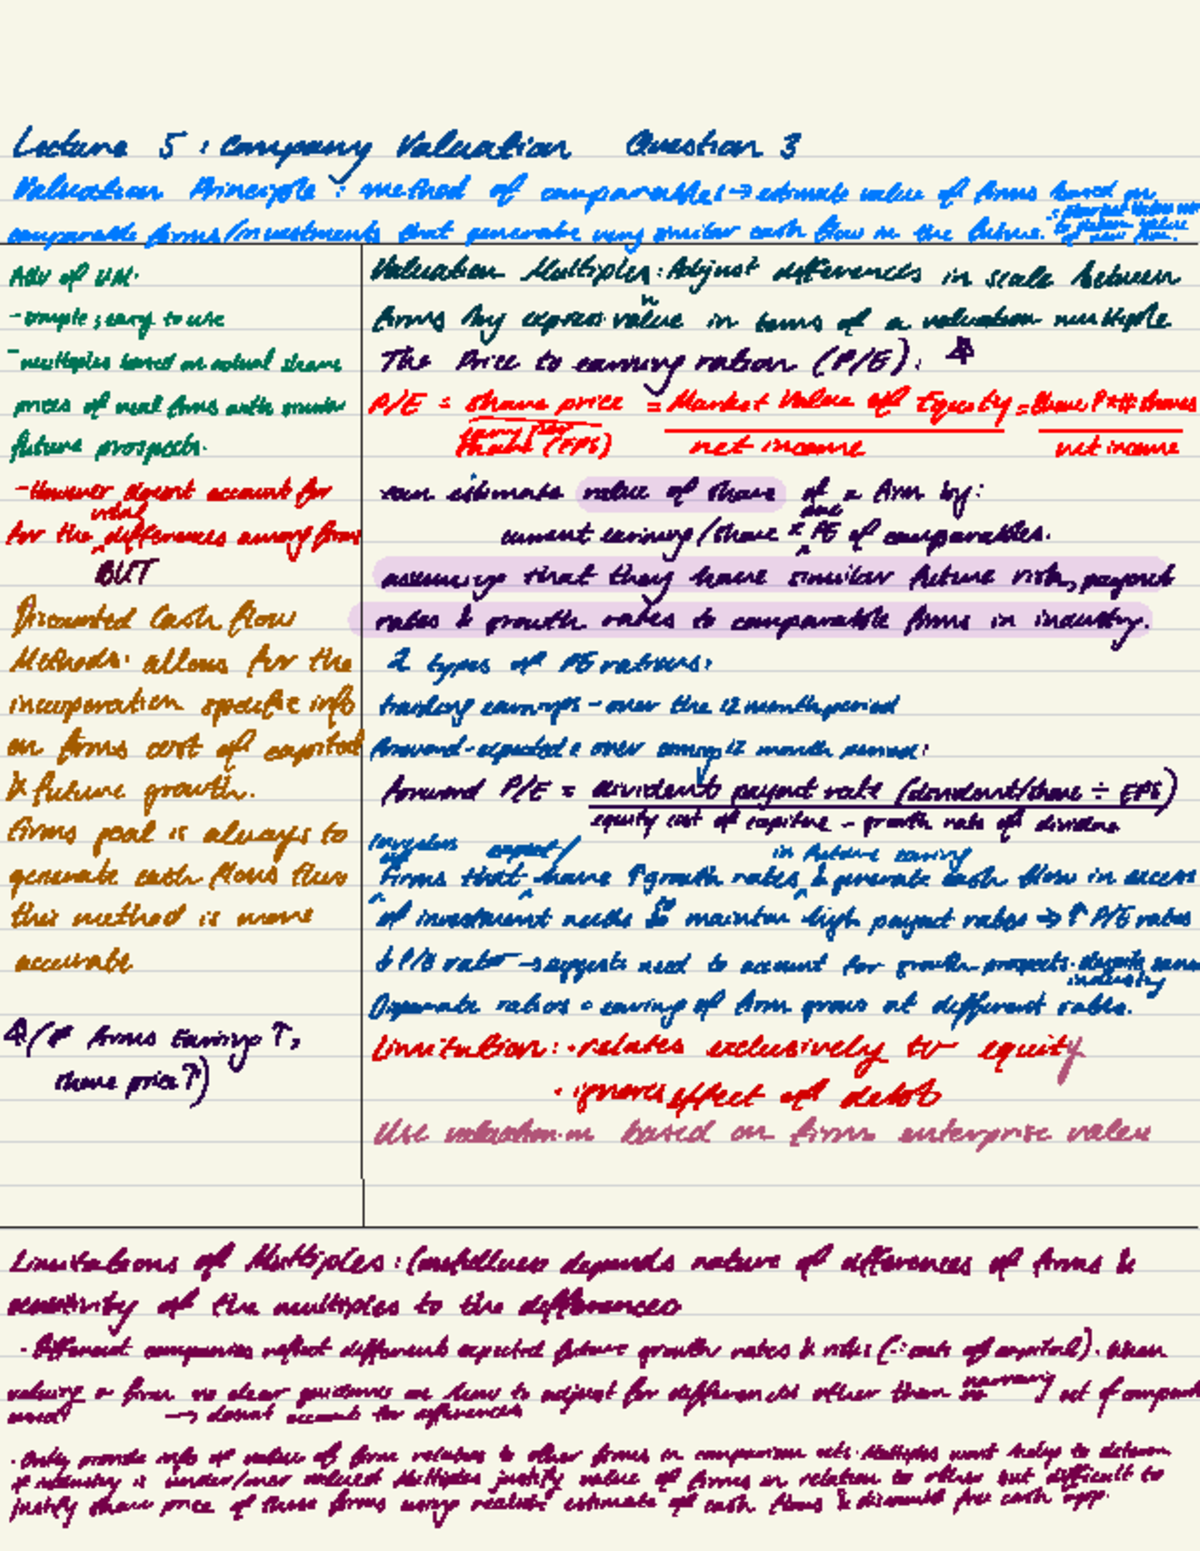 Lecture 5 : Company Valuation Question 3
Valuation Principle : method of comparables → estimate value of firms based on
comparable firms/investments that generate very similar cash flow in the future.
Adv of VM:
- simple ; easy to use
- multiples based on actual share
prices of real firms with similar
future prospects.
- However doesnt account for
for the vital differences among firms
BUT
Discounted Cash flow
Methods: allows for the
incorporation specific info
on firms cost of capital
& future growth.
firms goal is always to
generate cash flows thus
this method is more
accurate
(if firms Earnings ↑,
share price ↑)
Valuation Multiples: Adjust differences in scale between
firms by express value in terms of a valuation multiple
The Price to earning ration (P/E):
P/E = share price = Market Value of Equity = share P x # shares
earning per share (EPS) net income net income
can estimate value of share of a firm by:
current earning/share x PE of comparables.
assuming that they have similar future risk, payout
rates & growth rates to comparable firms in industry.
2 types of PE rations:
trailing earnings - over the 12 month period
forward - expected over coming 12 month period:
forward P/E = dividend payout rate (dividend/share ÷ EPS)
equity cost of capital - growth rate of dividend
in future earning
firms that have ↑ growth rates & generate cash flow in excess
of investment needs to maintain high payout rates → ↑ P/E rates
↓ P/E ratio → suggests need to account for growth prospects. despite same
industry
Disparate ratios = earnings of firm grows at different rates.
Limitation: · relates exclusively to equity
· ignores effect of debt
Use valuation based on firms enterprise value
Limitations of Multiples: (usefulness depends nature of differences of firms &
sensitivity of the multiples to the differences
· Different companies reflect different expected future growth rates & risks (∴ costs of capital). When
valuing a firm no clear guidance on how to adjust for differences other than narrowing set of
used → doesnt account for differences
· Only provide info of value of firm relative to other firms in comparison set. Multiples wont help to determine
if industry is under/over valued Multiples justify value of firms in relation to others but difficult to
justify share price of those firms using realistic estimate of cash flows & discounted free cash app.